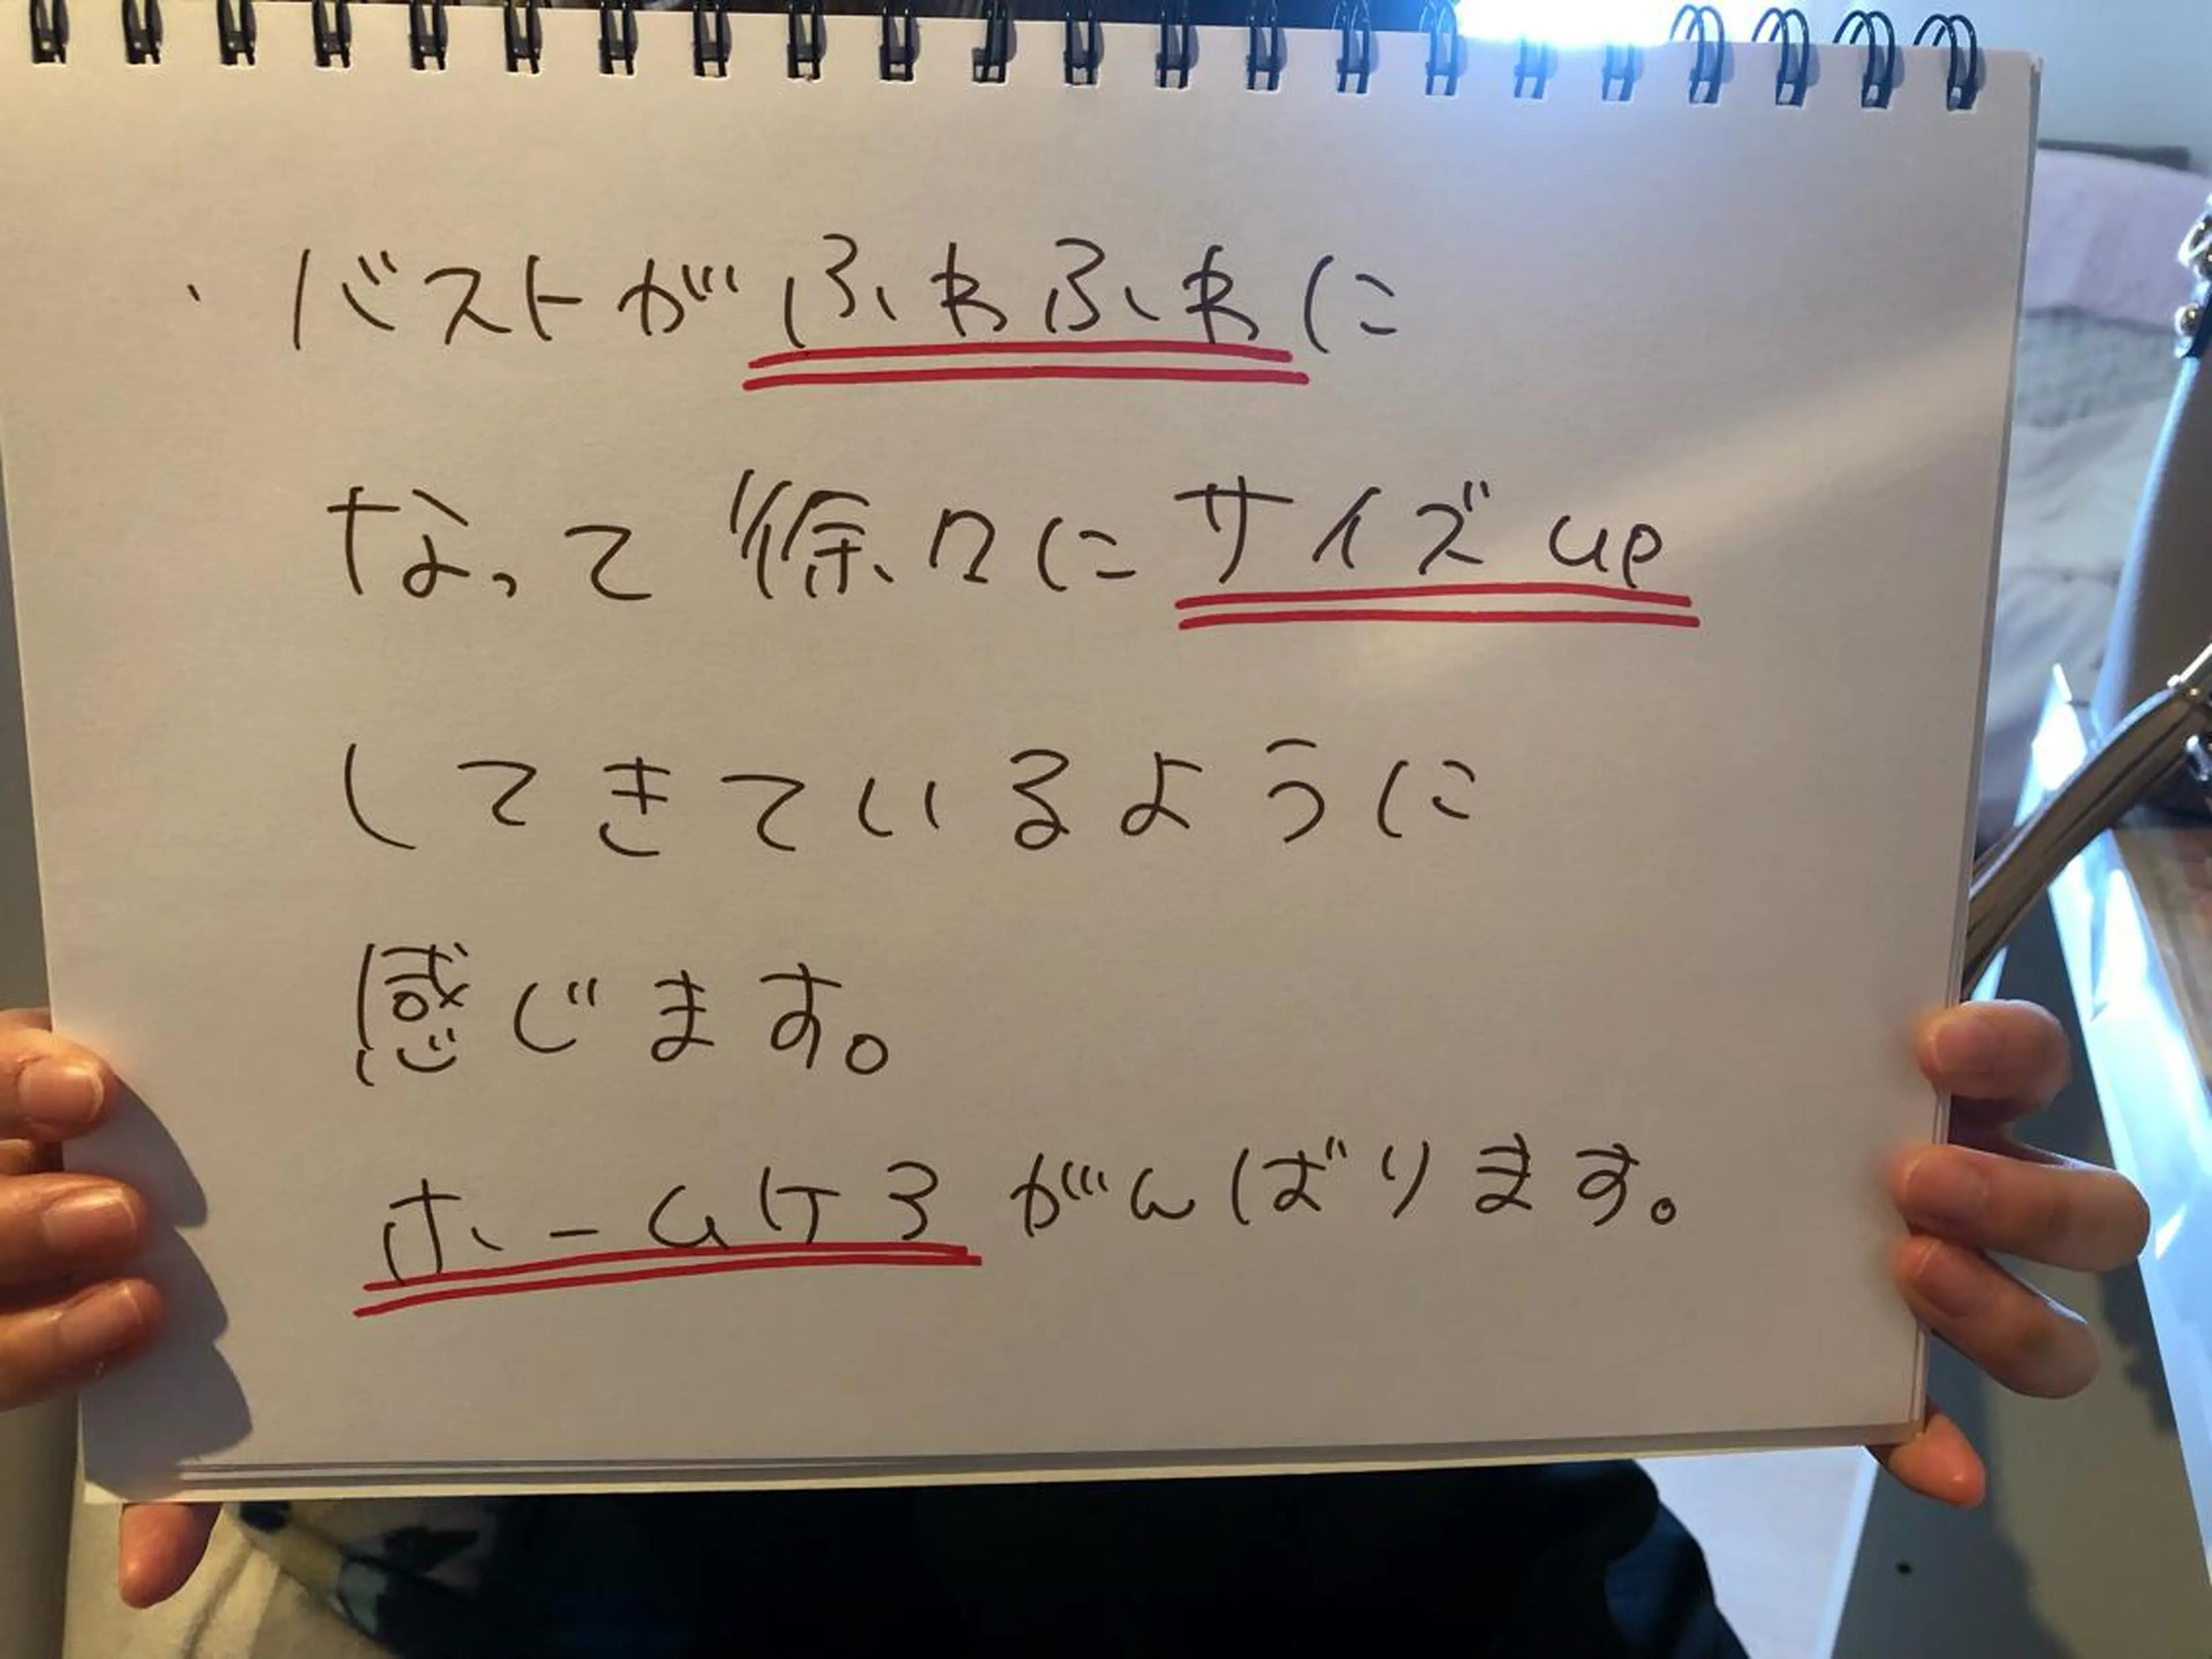 ・バストがふわふわに
なって徐々にサイズup
してきているように
感じます。
ホームケアがんばります。